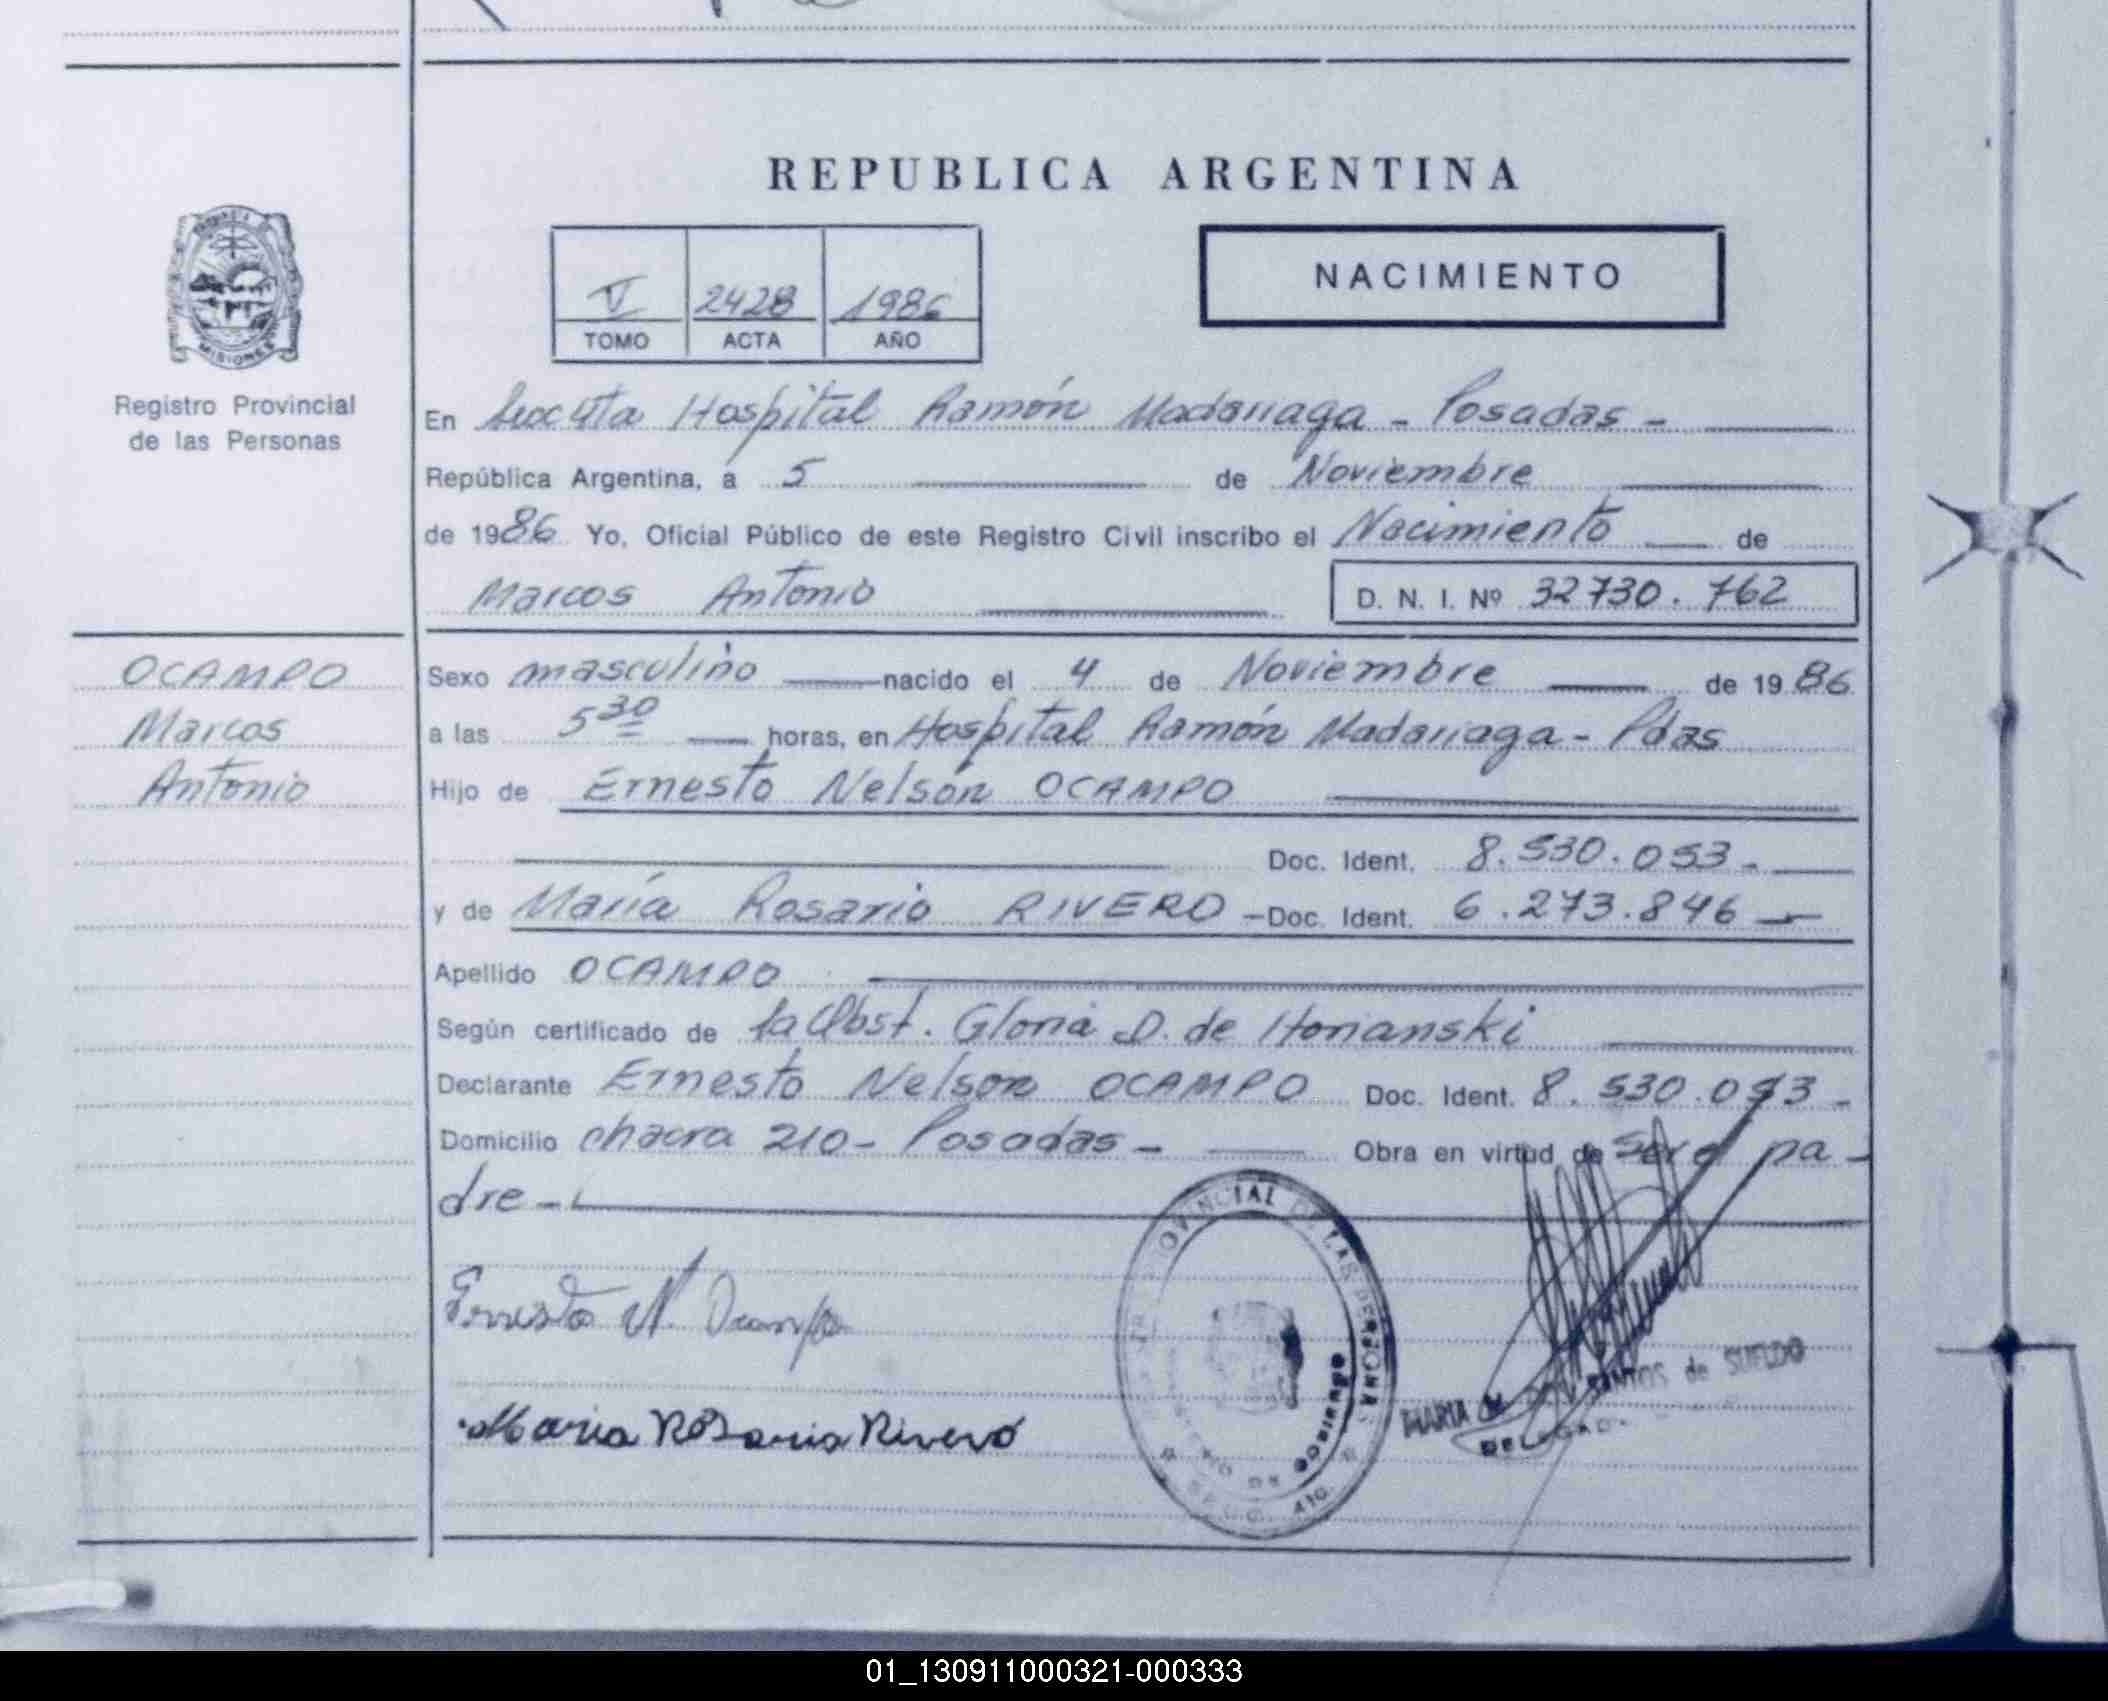 REPUBLICA ARGENTINA
V 2428 1986
TOMO ACTA AÑO
NACIMIENTO
MISIONES
Registro Provincial
de las Personas
En Hospital Ramón Madariaga - Posadas -
República Argentina, a 5 de Noviembre
de 1986 Yo, Oficial Público de este Registro Civil inscribo el Nacimiento de
Marcos Antonio
D. N. I. Nº 32730.762
OCAMPO
Marcos
Antonio
Sexo masculino nacido el 4 de Noviembre de 1986
a las 5 30 horas, en Hospital Ramón Madariaga - Pdas
Hijo de Ernesto Nelson OCAMPO
Doc. Ident. 8.530.053 -
y de María Rosario RIVERO - Doc. Ident. 6.273.846
Apellido OCAMPO
Según certificado de la Obst. Gloria D. de Horianski
Declarante Ernesto Nelson OCAMPO Doc. Ident. 8.530.053 -
Domicilio chacra 210 - Posadas - Obra en virtud de ser el pa -
dre -
Ernesto N. Ocampo
Maria Rosaria Rivero
PROVINCIAL DE LAS PERSONAS
MARIA de DOS SANTOS de SUELDO
01_130911000321-000333